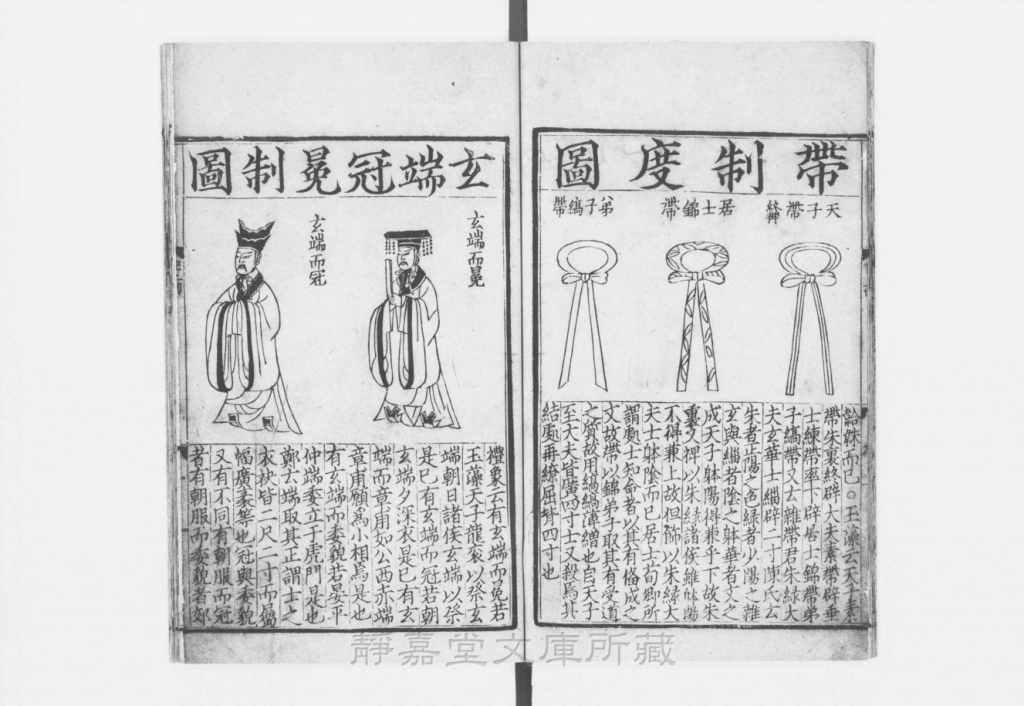 帶制度圖
天子帶終辟
居士錦帶
弟子縞帶
韐韎而已○玉藻云天子素
帶朱裏終辟大夫素帶辟垂
士練帶率下辟居士錦帶弟
子縞帶又云雜帶君朱綠大
夫玄華士緇辟二寸陳氏云
朱者正陽之色綠者少陽之雜
玄與緇者陰之躰華者文之
成天子躰陽得兼乎下故朱
裏又裨以朱綠諸侯雖躰陽
不得兼上故但飾以朱綠大
夫士躰陰而已居士荀卿所
謂處士知命者以其有備成之
文故帶以錦弟子取其有受道
之質故用縞縞薄繒也自天子
至大夫皆廣四寸士又殺焉其
結處再繚屈對四寸也
玄端冠冕制圖
玄端而冕
玄端而冠
禮象云有玄端而冕若
玉藻天子龍衮以祭玄
端朝日諸侯玄端以祭
是也有玄端而冠若朝
玄端夕深衣是已有玄
端而章甫如公西赤端
章甫願為小相焉是也
有玄端而委貌若晏平
仲端委立于虎門是也
鄭云端取其正謂士之
衣袂皆二尺二寸而屬
幅廣袤等也冠與委貌
又有不同有朝服而冠
者有朝服而委貌者郊
靜嘉堂文庫所藏